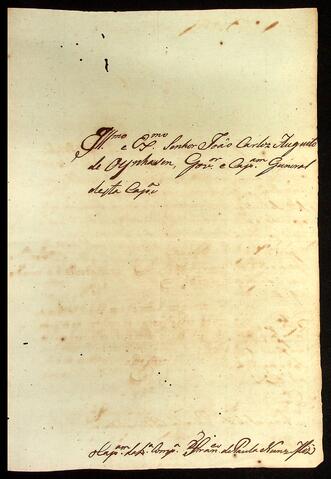 Ill.mo e Ex.mo Senhor João Carlos Augusto
de Oynhausen, Gov.or e Cap.am General
desta Cap.a
Cap.am da Comp.a Fran.co de Paula Nunz